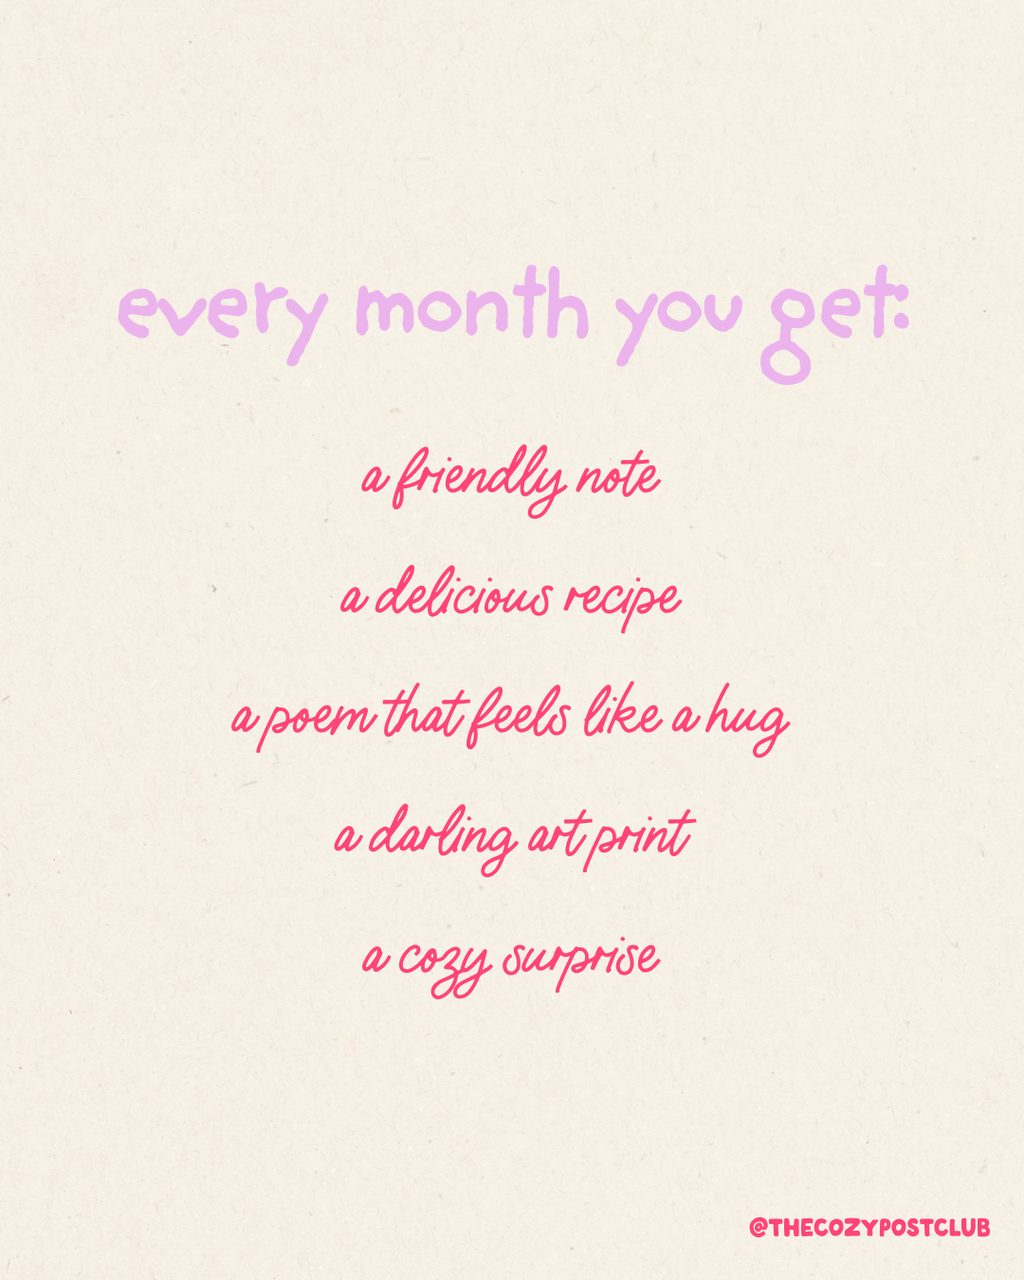 every month you get:
a friendly note
a delicious recipe
a poem that feels like a hug
a darling art print
a cozy surprise
@THECOZYPOSTCLUB